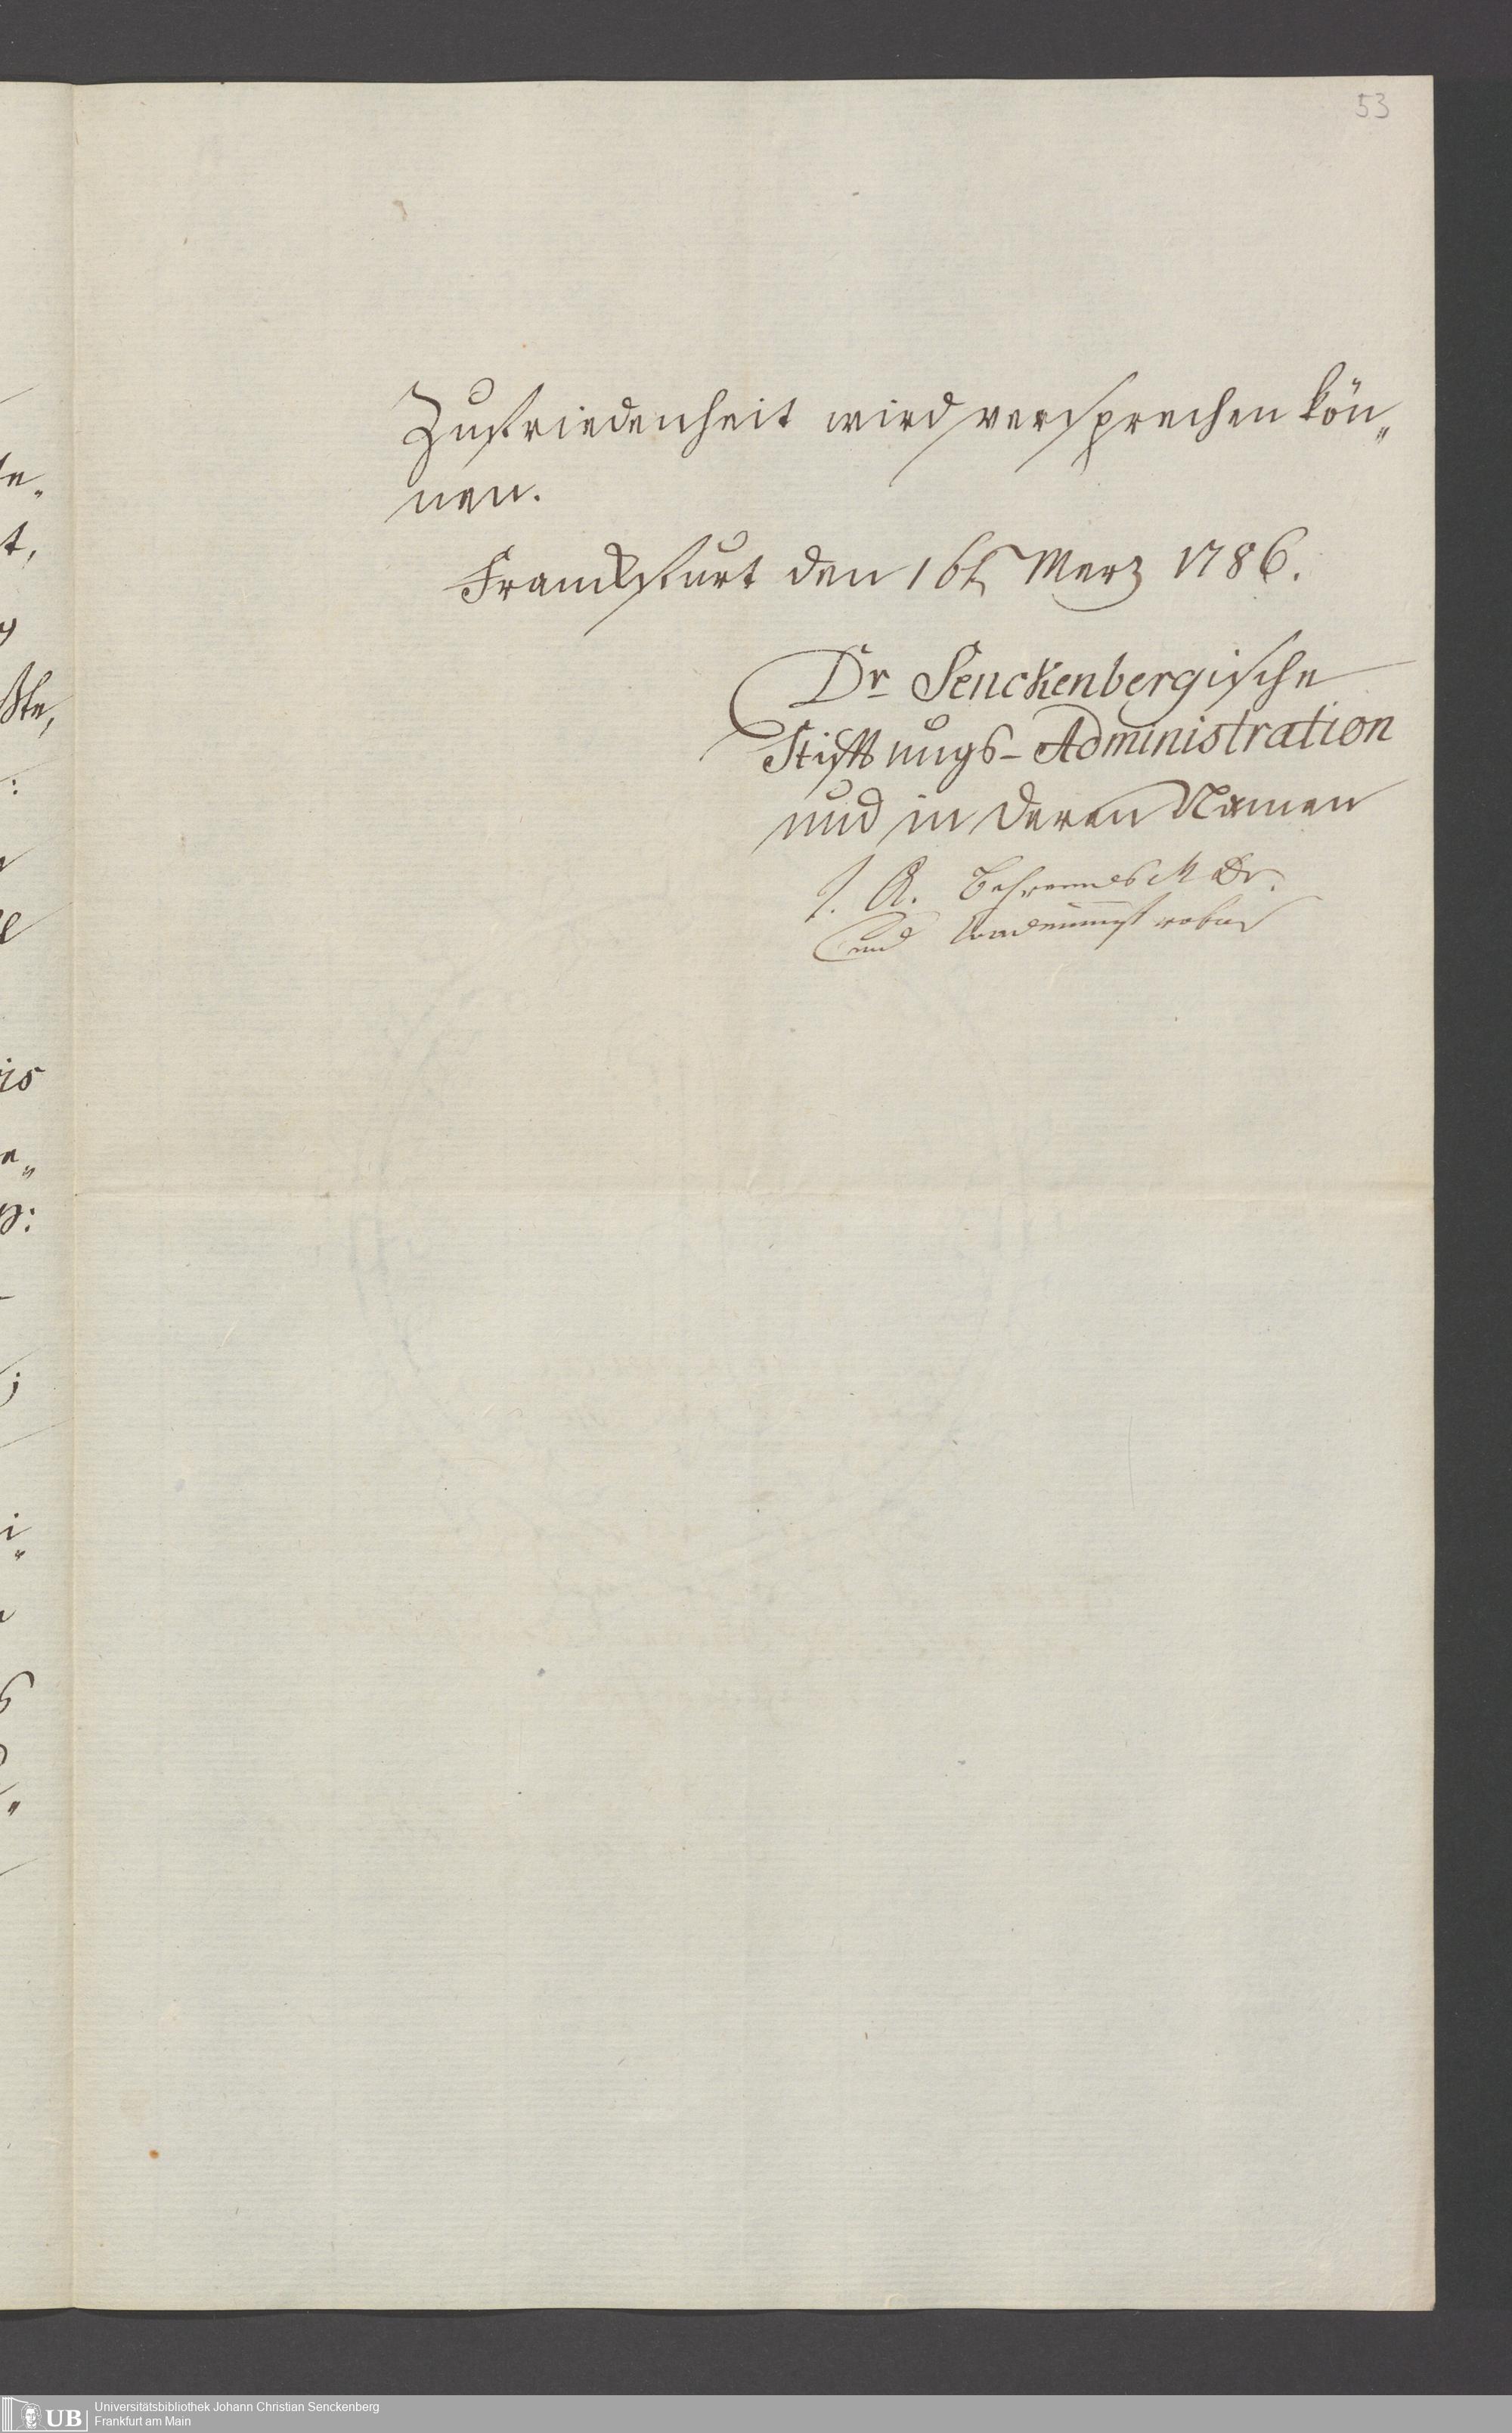 53
Zufriedenheit wird versprechen kön„
nen.
Franckfurt den 16t Merz 1786.
Dr Senckenbergische
Stifftungs-Administration
und in deren Namen
J. A. Behrends M Dr.
und
te„
t,
ßte,
:
is
e„
i„
UB
Universitätsbibliothek Johann Christian Senckenberg
Frankfurt am Main